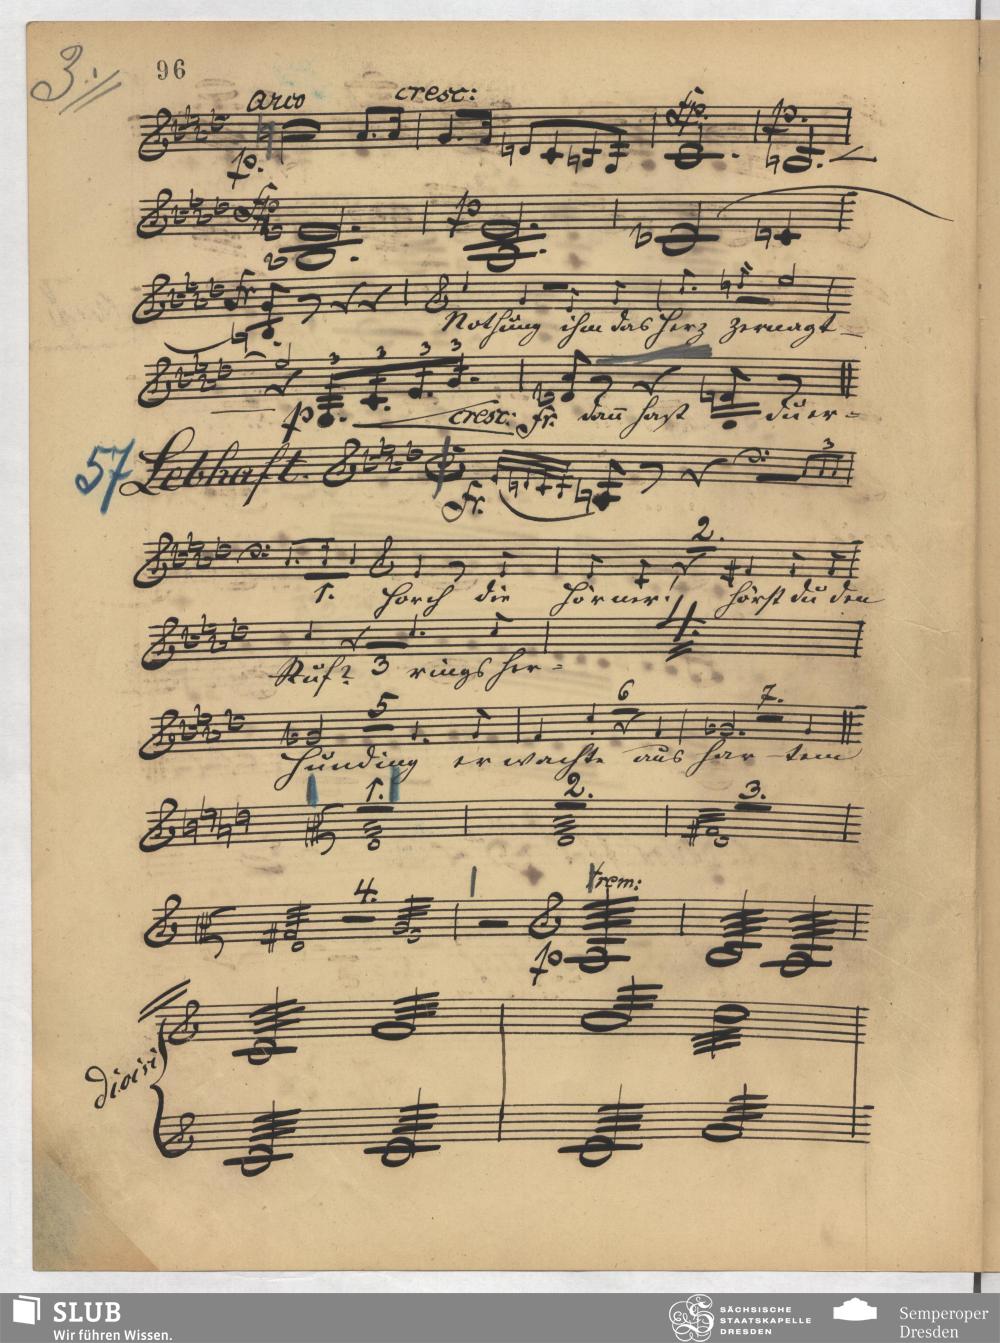 3.
96
arco cresc:
p. fp. fp.
fp fp
fr Nothung ihm das Herz zernagt
3 3 3 3
p cresc: fr. dann hast du er=
57 Lebhaft.
fr. 3
2.
1. Horch die Hörner; hörst du den
4.
Ruf? 3 rings her=
5 6 7.
Hunding erwachte aus hartem
1. 2. 3.
4. trem:
p
divisi
SLUB
Wir führen Wissen.
SÄCHSISCHE
STAATSKAPELLE
DRESDEN
Semperoper
Dresden